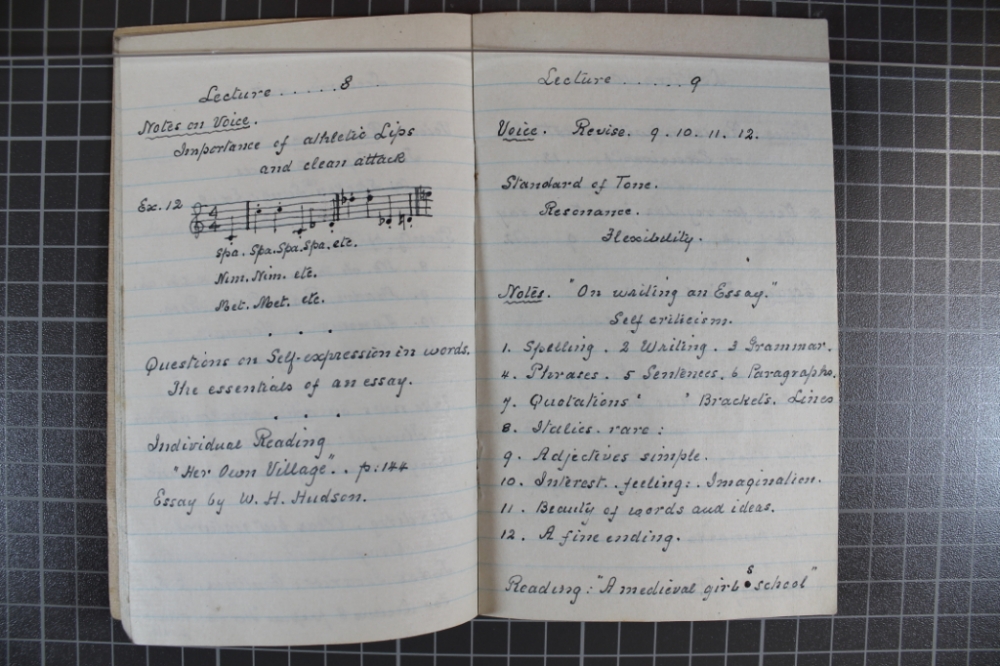 Lecture ..... 8
Notes on Voice.
Importance of athletic Lips
and clean attack
Ex. 12
4 4
Spa. Spa. Spa. Spa. etc.
Nim. Nim. etc.
Met. Met. etc.
Questions on Self-expression in words.
The essentials of an essay.
Individual Reading
"Her Own Village".. p: 144
Essay by W. H. Hudson.
Lecture ..... 9
Voice. Revise. 9. 10. 11. 12.
Standard of Tone.
Resonance.
Flexibility.
Notes. "On writing an Essay."
Self criticism.
1. Spelling. 2 Writing. 3 Grammar.
4. Phrases. 5 Sentences. 6 Paragraphs.
7. Quotations ' ' Brackets. Lines
8. Italics. rare:
9. Adjectives simple.
10. Interest.. feeling:. Imagination.
11. Beauty of words and ideas.
12. A fine ending.
Reading: "A medieval girls school"